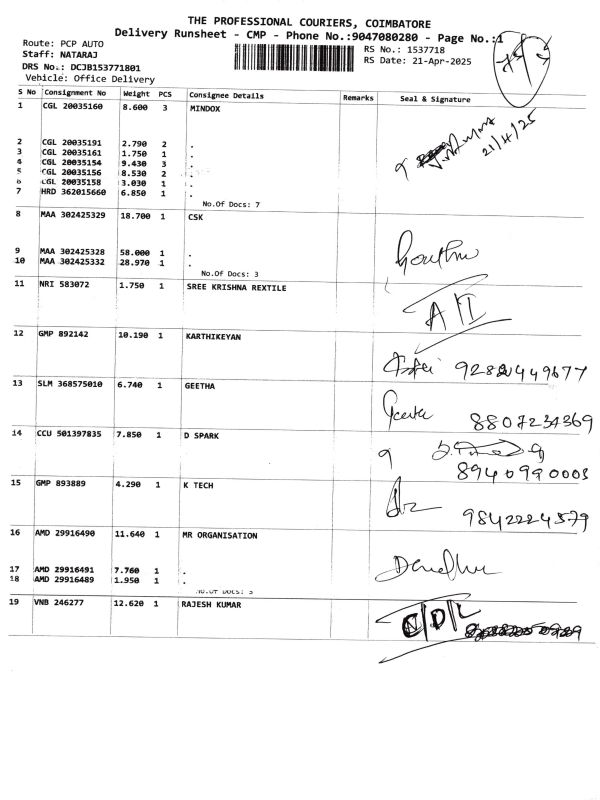 THE PROFESSIONAL COURIERS, COIMBATORE
Delivery Runsheet - CMP - Phone No.:9047080280 - Page No.:1
Route: PCP AUTO
Staff: NATARAJ
RS No.: 1537718
RS Date: 21-Apr-2025
DRS No.: DCJB153771801
Vehicle: Office Delivery
S No Consignment No Weight PCS Consignee Details Remarks Seal & Signature
1 CGL 20035160 8.600 3 MINDOX
21/4/25
2 CGL 20035191 2.790 2 .
3 CGL 20035161 1.750 1 .
4 CGL 20035154 9.430 3 .
5 CGL 20035156 8.530 2 .
6 CGL 20035158 3.030 1 .
7 HRD 362015660 6.850 1 .
No.Of Docs: 7
8 MAA 302425329 18.700 1 CSK
9 MAA 302425328 58.000 1 .
10 MAA 302425332 28.970 1 .
No.Of Docs: 3
11 NRI 583072 1.750 1 SREE KRISHNA REXTILE
12 GMP 892142 10.190 1 KARTHIKEYAN
13 SLM 368575010 6.740 1 GEETHA
Geetha 8807234369
14 CCU 501397835 7.850 1 D SPARK
8940990003
15 GMP 893889 4.290 1 K TECH
9842224579
16 AMD 29916490 11.640 1 MR ORGANISATION
17 AMD 29916491 7.760 1 .
18 AMD 29916489 1.950 1 .
No.Of Docs: 3
19 VNB 246277 12.620 1 RAJESH KUMAR